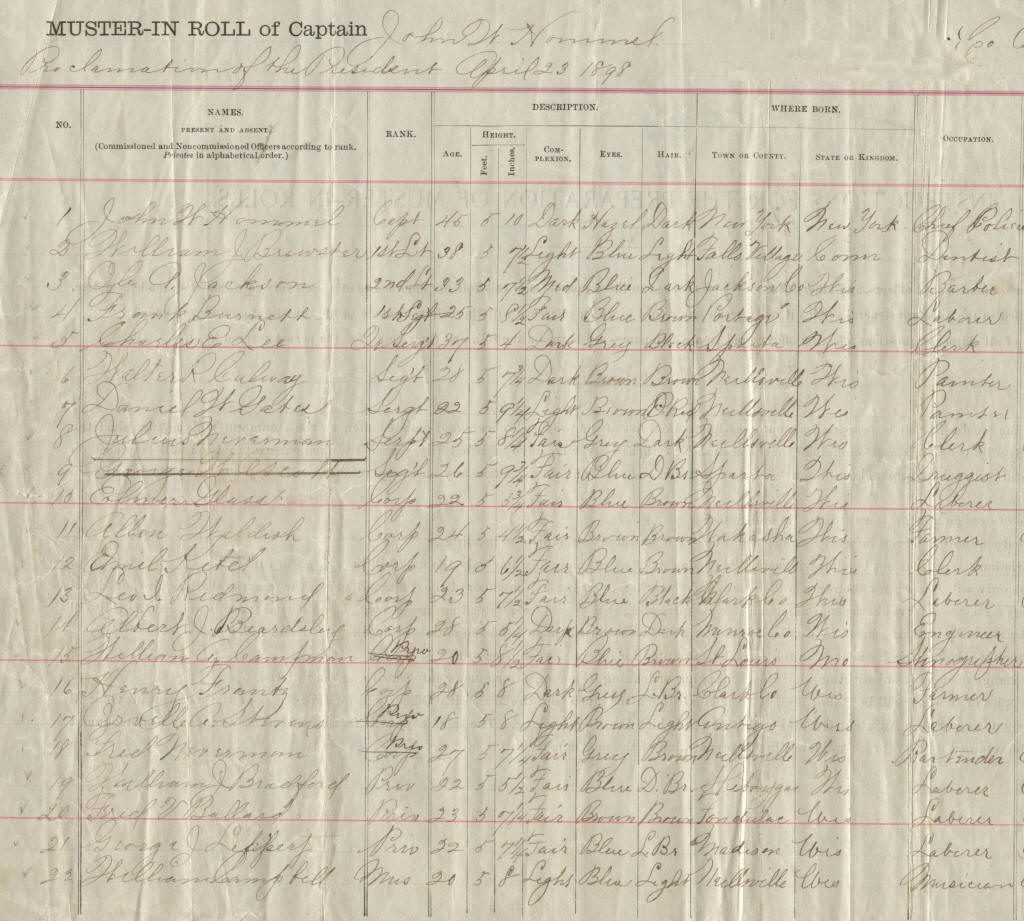 MUSTER-IN ROLL of Captain John W. Hommel. Co
Proclamation of the President April 23 1898
NO. NAMES. PRESENT AND ABSENT. (Commissioned and Noncommissioned Officers according to rank. Privates in alphabetical order.) RANK. DESCRIPTION. AGE. HEIGHT. Feet. Inches. COMPLEXION. EYES. HAIR. WHERE BORN. TOWN OR COUNTY. STATE OR KINGDOM. OCCUPATION.
1 John W Hommel Capt 45 5 10 Dark Hazel Dark New York New York Chief Police
2 William J Brewster 1st Lt 38 5 7½ Light Blue Light Falls Village Conn Dentist
3 Ole A. Jackson 2nd Lt 23 5 7½ Med Blue Dark Jackson Co Wis Barber
4 Frank Burnett 1st Sgt 25 5 8½ Fair Blue Brown Portage Wis Laborer
5 Charles E Lee 37 5 4 Dark Grey Black Sparta Wis Clerk
6 Walter R Calway Sergt 28 5 7¾ Dark Brown Brown Neillsville Wis Painter
7 Daniel W Gates Sergt 22 5 9¼ Light Brown Neillsville Wis Painter
8 Julius Neverman Sergt 25 5 8¼ Fair Grey Dark Neillsville Wis Clerk
9 George W Sergt 26 5 Fair Blue D Br. Sparta Wis Druggist
10 Elmer Corp 22 5 Fair Blue Brown Neillsville Wis Laborer
11 Corp 24 5 4½ Fair Brown Brown Wis Farmer
12 Emil Ketel Corp 19 5 6½ Fair Blue Brown Neillsvill Wis Clerk
13 Leo J. Redmond Corp 23 5 7½ Fair Blue Black Clark Co Wis Laborer
14 Albert J Beardsley Corp 28 5 5¼ Dark Brown Dark Munroe Co. Wis Engineer
15 William A. Campman Corp Priv 20 5 8½ Fair Blue Brown St Louis Mo Stenographer
16 Henry Frantz Corp 28 5 8 Dark Grey L. Br. Clark Co Wis Farmer
17 Orville A. Stevens Corp Priv 18 5 8 Light Brown Light Antigo Wis Laborer
18 Fred Neverman Corp Priv 27 5 7¼ Fair Grey Brown Neillsville Wis Bartender
19 William J Bradford Priv 22 5 5½ Fair Blue D. Br Wis Laborer
20 Fred V Ballard Priv 23 5 7¼ Fair Brown Brown Fondulac Wis Laborer
21 George J Leppert Priv 22 5 7¼ Fair Blue L Br Madison Wis Laborer
22 William Campbell Mus 20 5 8 Light Blue Light Neillsville Wis Musician